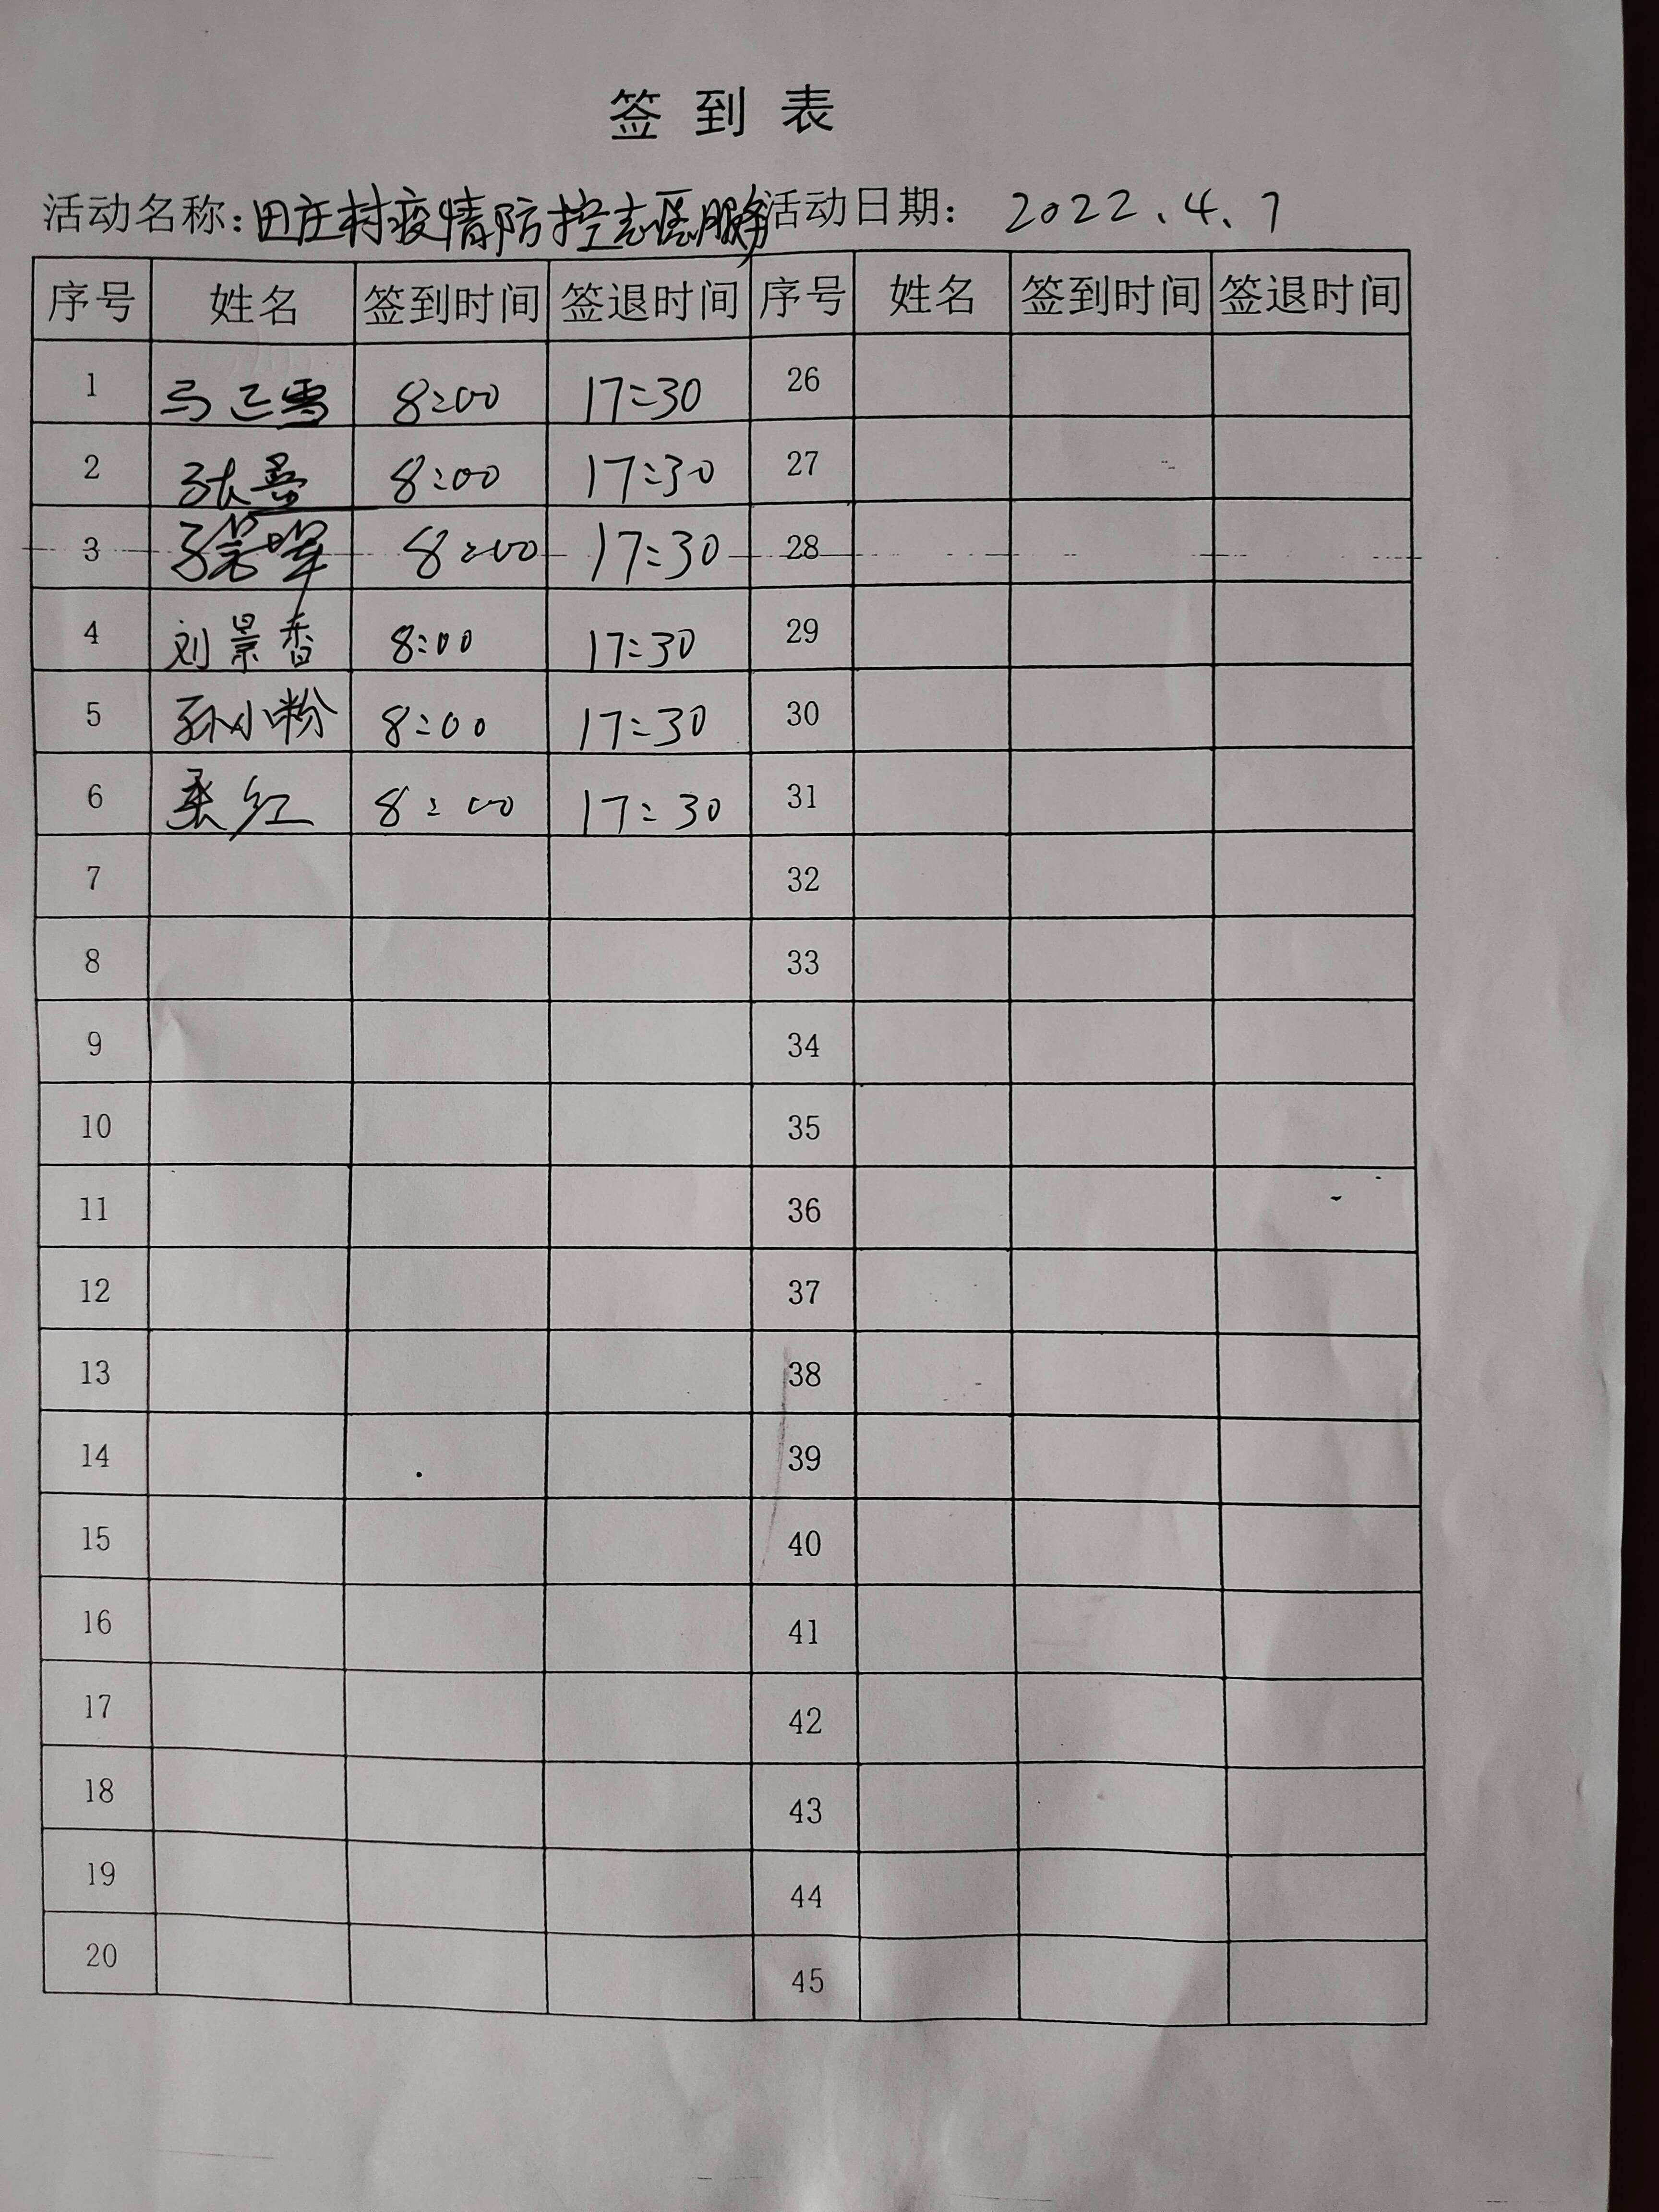 签到表
活动名称：田庄村疫情防控志愿服务 活动日期： 2022.4.7
序号 姓名 签到时间 签退时间 序号 姓名 签到时间 签退时间
1 8:00 17:30 26
2 8:00 17:30 27
3 8:00 17:30 28
4 刘景香 8:00 17:30 29
5 孙小粉 8:00 17:30 30
6 8:00 17:30 31
7 32
8 33
9 34
10 35
11 36
12 37
13 38
14 39
15 40
16 41
17 42
18 43
19 44
20 45